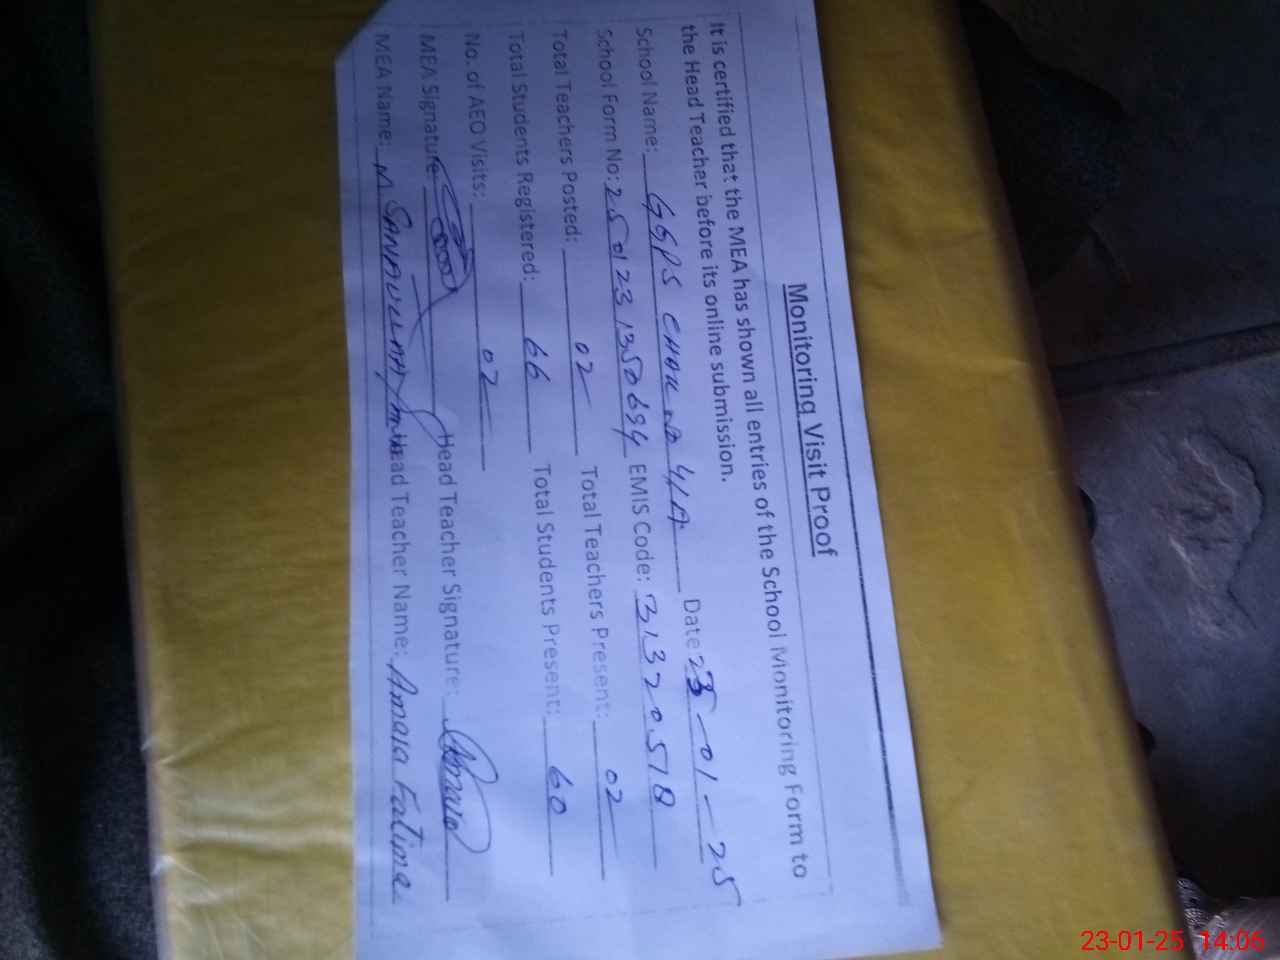 Monitoring Visit Proof
It is certified that the MEA has shown all entries of the School Monitoring Form to
the Head Teacher before its online submission.
School Name: GGPS CHAK NO 4/A Date: 23-01-25
School Form No: 2501231350694 EMIS Code: 31320518
Total Teachers Posted: 02 Total Teachers Present: 02
Total Students Registered: 66 Total Students Present: 60
No. of AEO Visits: 02
MEA Signature: Head Teacher Signature:
MEA Name: M SANAULLAH Head Teacher Name: Amara Fatima
23-01-25 14:06